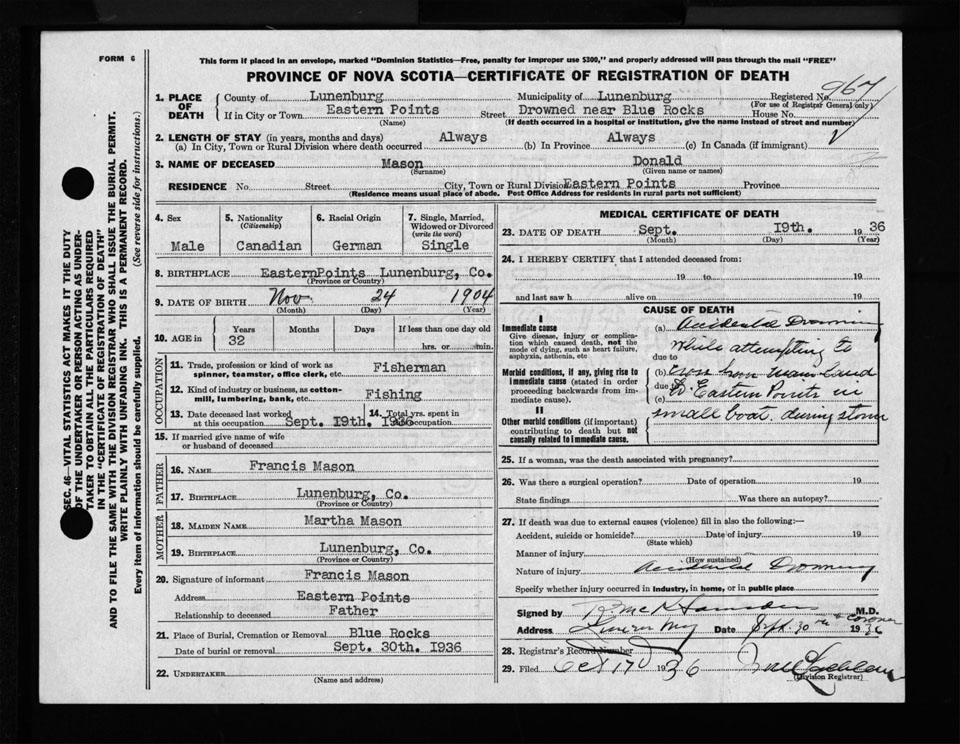 FORM 6
This form if placed in an envelope, marked "Dominion Statistics—Free, penalty for improper use $300," and properly addressed will pass through the mail "FREE"
PROVINCE OF NOVA SCOTIA—CERTIFICATE OF REGISTRATION OF DEATH
967
1. PLACE OF DEATH County of Lunenburg Municipality of Lunenburg Registered No.
(For use of Registrar General only)
If in City or Town Eastern Points Street Drowned near Blue Rocks House No.
(Name) (If death occurred in a hospital or institution, give the name instead of street and number)
2. LENGTH OF STAY (in years, months and days) Always Always
(a) In City, Town or Rural Division where death occurred (b) In Province (c) In Canada (if immigrant)
3. NAME OF DECEASED Mason Donald
(Surname) (Given name or names)
RESIDENCE No. Street City, Town or Rural Division Eastern Points Province
(Residence means usual place of abode. Post Office Address for residents in rural parts not sufficient)
SEC. 46—VITAL STATISTICS ACT MAKES IT THE DUTY
OF THE UNDERTAKER OR PERSON ACTING AS UNDER-
TAKER TO OBTAIN ALL THE PARTICULARS REQUIRED
IN THE "CERTIFICATE OF REGISTRATION OF DEATH"
AND TO FILE THE SAME WITH THE DIVISION REGISTRAR WHO SHALL ISSUE THE BURIAL PERMIT.
WRITE PLAINLY WITH UNFADING INK. THIS IS A PERMANENT RECORD.
Every item of information should be carefully supplied. (See reverse side for instructions.)
4. Sex
Male
5. Nationality
(Citizenship)
Canadian
6. Racial Origin
German
7. Single, Married,
Widowed or Divorced
(write the word)
Single
8. BIRTHPLACE Eastern Points Lunenburg, Co.
(Province or Country)
9. DATE OF BIRTH Nov 24 1904
(Month) (Day) (Year)
10. AGE in Years Months Days If less than one day old
32 hrs. or min.
OCCUPATION
11. Trade, profession or kind of work as Fisherman
spinner, teamster, office clerk, etc.
12. Kind of industry or business, as cotton-
mill, lumbering, bank, etc. Fishing
13. Date deceased last worked 14. Total yrs. spent in
at this occupation Sept. 19th. 1936 occupation
15. If married give name of wife
or husband of deceased
FATHER
16. NAME Francis Mason
17. BIRTHPLACE Lunenburg, Co.
(Province or Country)
MOTHER
18. MAIDEN NAME Martha Mason
19. BIRTHPLACE Lunenburg, Co.
(Province or Country)
20. Signature of informant Francis Mason
Address Eastern Points
Relationship to deceased Father
21. Place of Burial, Cremation or Removal Blue Rocks
Date of burial or removal Sept. 30th. 1936
22. UNDERTAKER
(Name and address)
MEDICAL CERTIFICATE OF DEATH
23. DATE OF DEATH Sept. 19th. 1936
(Month) (Day) (Year)
24. I HEREBY CERTIFY that I attended deceased from:
19 to 19
and last saw h alive on 19
CAUSE OF DEATH
I
Immediate cause
Give disease, injury or complica-
tion which caused death, not the
mode of dying, such as heart failure,
asphyxia, asthenia, etc
Morbid conditions, if any, giving rise to
immediate cause (stated in order
proceeding backwards from im-
mediate cause).
II
Other morbid conditions (if important)
contributing to death but not
causally related to immediate cause.
(a) Accidental Drowning
while attempting to
due to
(b) row from main land
due to Eastern Points in
(c)
small boat during storm
25. If a woman, was the death associated with pregnancy?
26. Was there a surgical operation? Date of operation 19
State findings Was there an autopsy?
27. If death was due to external causes (violence) fill in also the following:—
Accident, suicide or homicide? Date of injury 19
(State which)
Manner of injury
(How sustained)
Nature of injury Accidental Drowning
Specify whether injury occurred in industry, in home, or in public place
Signed by M.D.
& Coroner
Address Date Sept. 30th 1936
28. Registrar's Record Number
29. Filed Oct 17 1936
(Division Registrar)